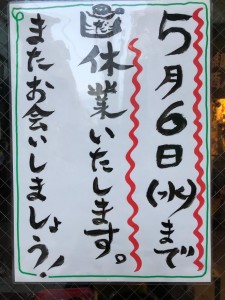 5月6日(水)まで
休業いたします。
またお会いしましょう!